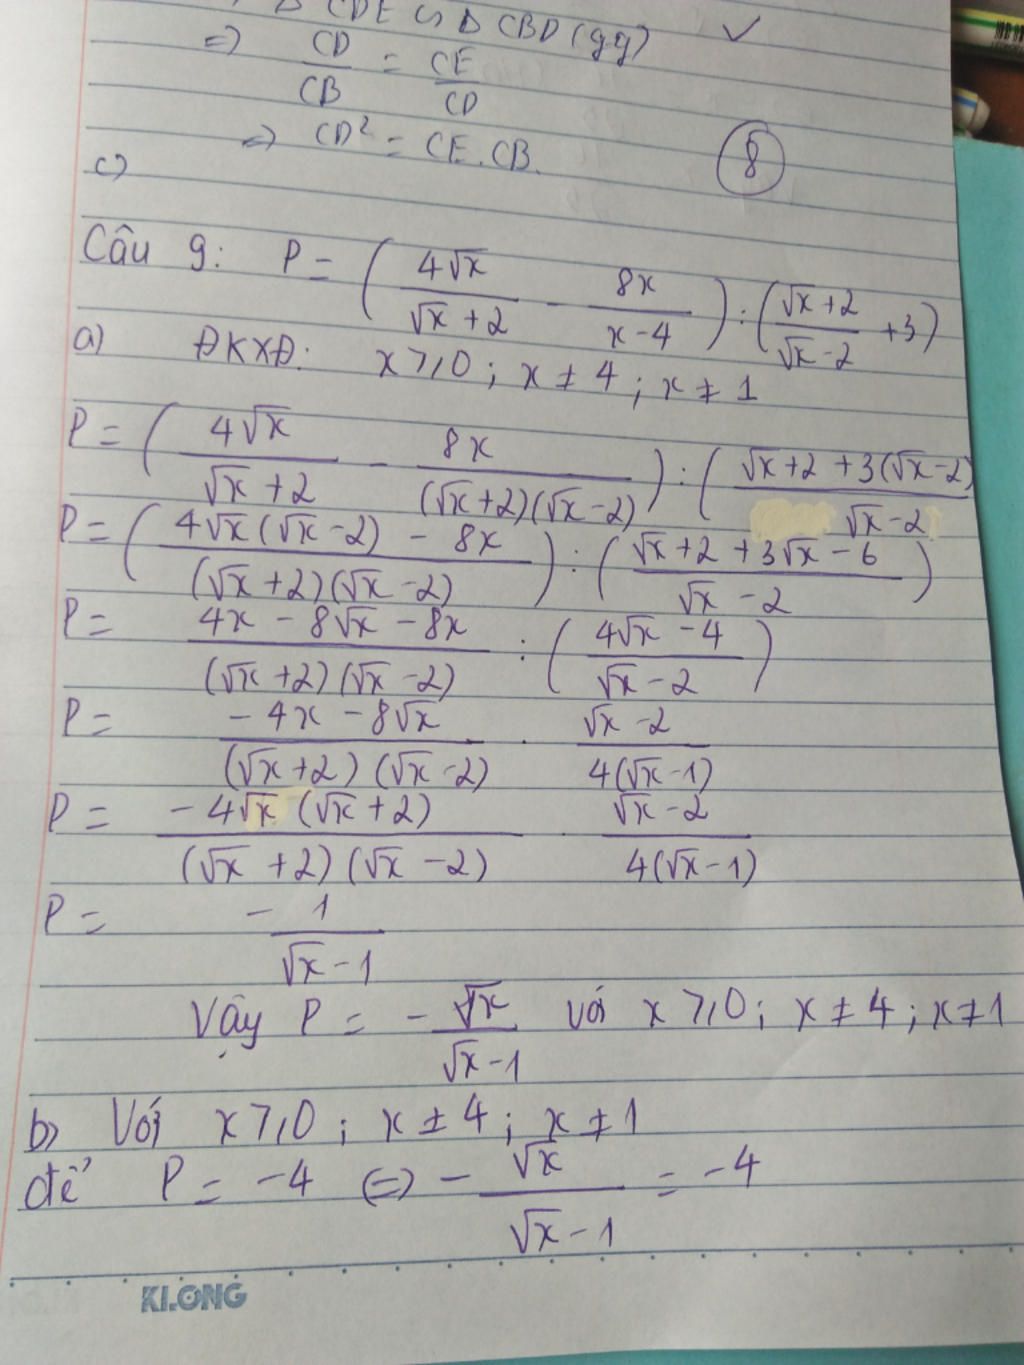 Δ CDE ∽ Δ CBD (gg) ✓
=> CD/CB = CE/CD
=> CD² = CE.CB.
c)
8
Câu 9: P = (4√x/(√x+2) - 8x/(x-4)) : ((√x+2)/(√x-2) + 3)
a) ĐKXĐ: x ⩾ 0; x ≠ 4; x ≠ 1
P = (4√x/(√x+2) - 8x/((√x+2)(√x-2))) : ((√x+2+3(√x-2))/(√x-2)
P = ((4√x(√x-2) - 8x)/((√x+2)(√x-2))) : ((√x+2+3√x-6)/(√x-2))
P = (4x - 8√x - 8x)/((√x+2)(√x-2)) : ((4√x-4)/(√x-2))
P = (-4x - 8√x)/((√x+2)(√x-2)) . (√x-2)/(4(√x-1))
P = (-4√x(√x+2))/((√x+2)(√x-2)) . (√x-2)/(4(√x-1))
P = - 1/(√x-1)
Vậy P = - √x/(√x-1) với x ⩾ 0; x ≠ 4; x ≠ 1
b) Với x ⩾ 0; x ≠ 4; x ≠ 1
để P = -4 (=) - √x/(√x-1) = -4
KLONG